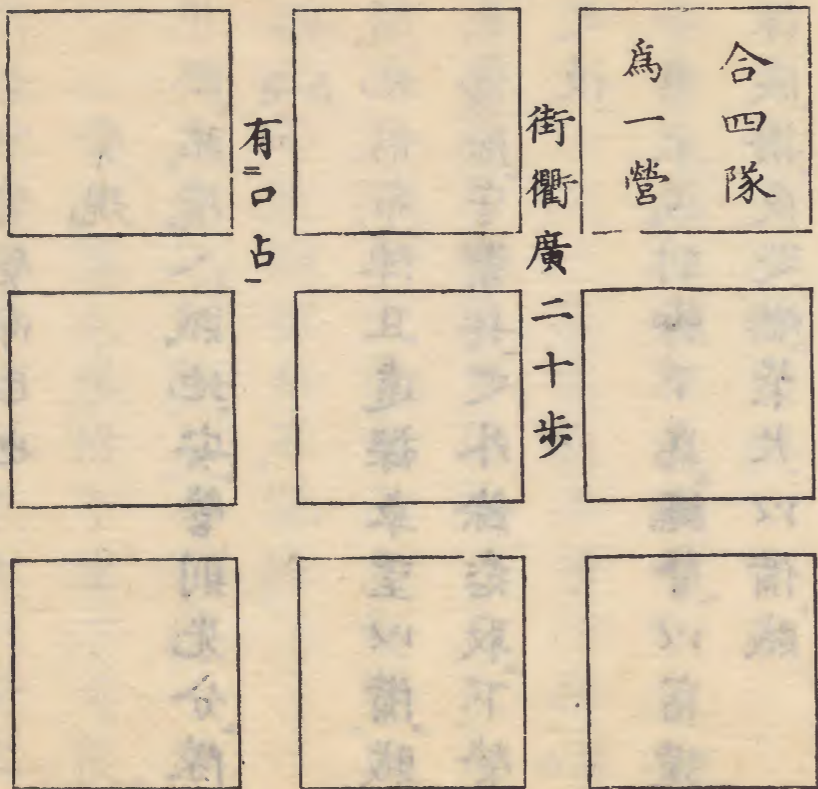 合四隊
爲一營
街衢廣二十步
有口占